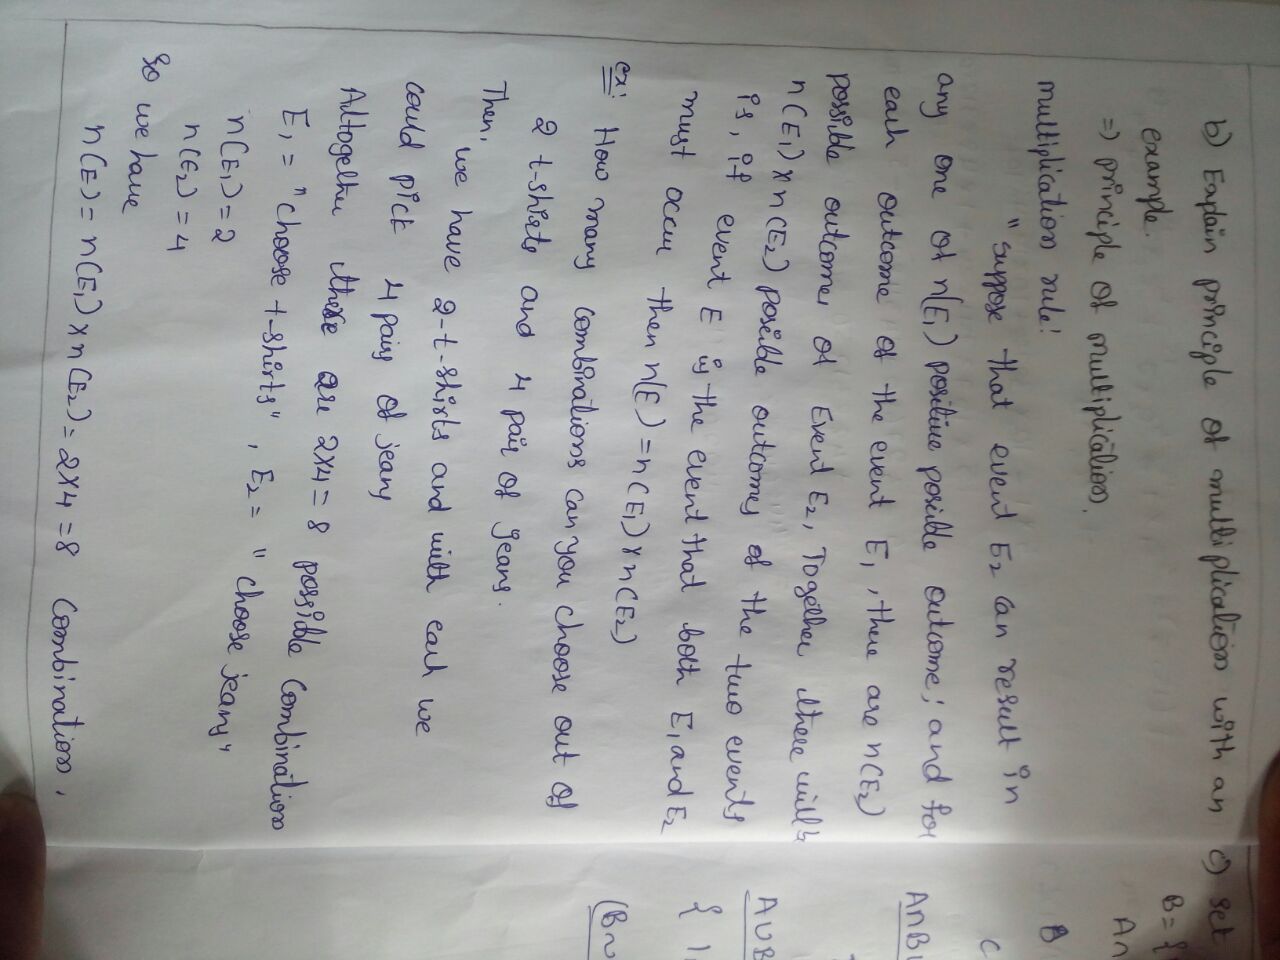 b) Explain principle of multiplication with an
example.
=) principle of multiplication.
multiplication rule:
"suppose that event E₂ can result in
any one of n(E₁) positive possible outcome; and for
each outcome of the event E₁, there are n(E₂)
possible outcomes of Event E₂, Together there will b
n(E₁) x n(E₂) possible outcomes of the two events
is, if event E is the event that both E₁ and E₂
must occur then n(E) = n(E₁) x n(E₂)
ex: How many combinations can you choose out of
2 t-shirts and 4 pair of jeans.
Then,
we have 2-t-shirts and with each we
could pick 4 pairs of jeans
Altogether there are 2x4=8 possible combination
E₁ = "choose t-shirts", E₂ = "choose jeans"
n(E₁) = 2
n(E₂) = 4
so we have
n(E) = n(E₁) x n(E₂) = 2x4 = 8 combination.
c) set
B = {
An
B
C
A∩B
A∪B
{ 1,
(B~